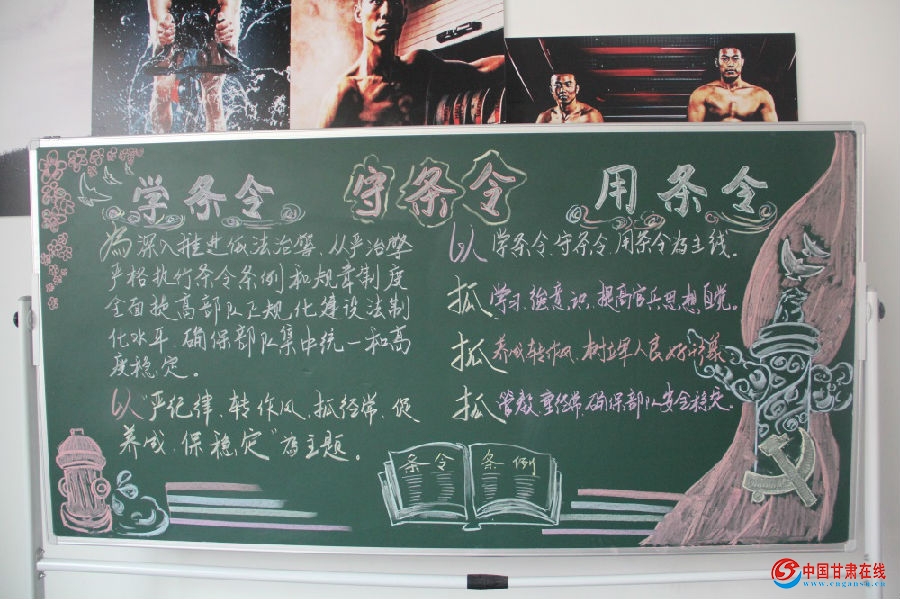 学条令 守条令 用条令
为深入推进依法治警、从严治警
严格执行条令条例和规章制度
全面提高部队正规化建设法制
化水平,确保部队集中统一和高
度稳定。
以“严纪律、转作风、抓经常、促
养成、保稳定”为主题。
以学条令、守条令、用条令为主线。
抓学习,强意识,提高官兵思想自觉。
抓养成,转作风,树立军人良好形象。
抓管教,重经常,确保部队安全稳定。
条令 条例
中国甘肃在线
www.cngansu.cn